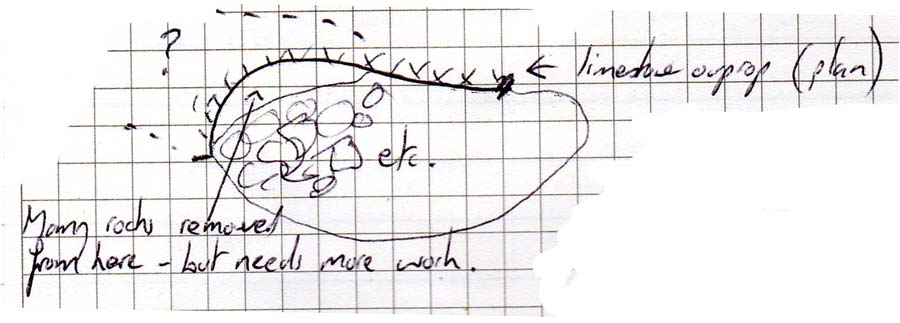 ?
← limestone outcrop (plan)
etc.
Many rocks removed
from here - but needs more work.